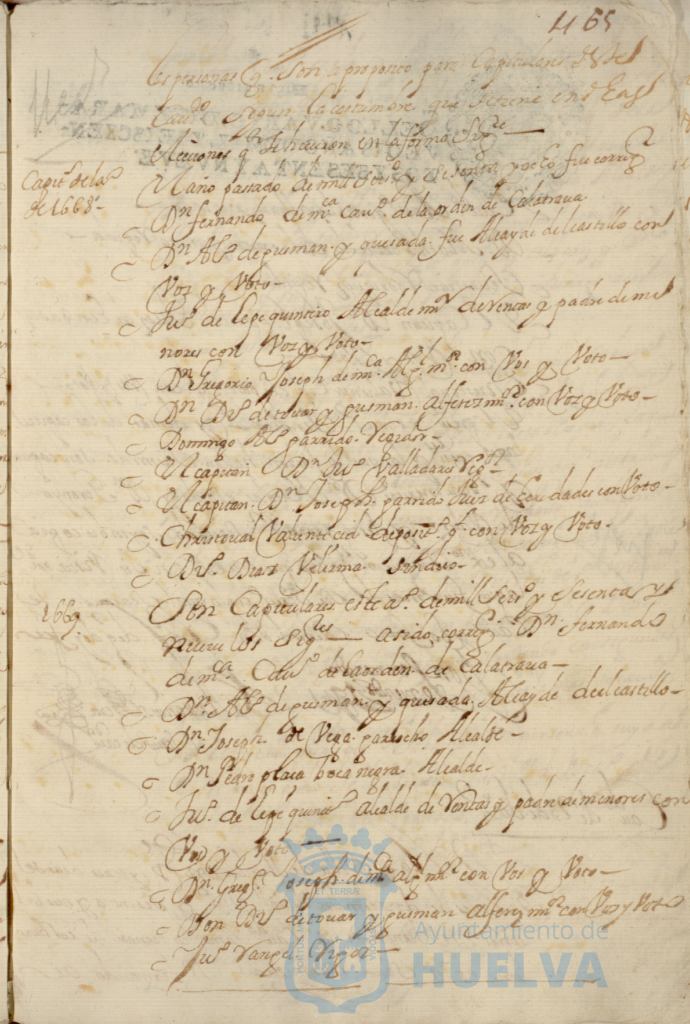 465
las personas q. son a proposito para Capitulares deste
Cavdo segun la costumbre que se tiene en las
elecciones q se hicieron en la forma sigte
Capits de la
de 1668
El año pasado de mil seiso y sesenta y ocho fue corregr
Dn fernando de mca cavo de la orden de Calatrava
Dn Alo de gusman y quesada fue Alcayde del castillo con
Voz y Voto
Juo de Lepe quintero Alcalde mor de Ventas y padre de me
nores con Voz y Voto
Dn Gregorio Joseph de mca Algl mor con Vos y Voto
Dn Do de tovar y gusman alferez mor con Voz y Voto
Domingo Alo garrido Regidor
El capitan Dn Juo Valladares Regor
El capitan Dn Joseph garrido con Voto
Christoval Valiente cid deposito gl con Voz y Voto
Do Diaz sindico
1669
Son Capitulares este ao de mill seiso y sesenta y
nueve los sigtes a sido corregr Dn fernando
de mca Cavo de la orden de Calatrava
Dn Alo de gusman y quesada Alcayde del castillo
Dn Joseph de Vega garrocho Alcalde
Dn Pedro plaça boca negra Alcalde
Juo de Lepe quinto alcalde de Ventas y padre de menores con
Vos y Voto
Dn Grego Joseph de mca algl mor con Vos y Voto
Don Do de tovar y gusman alferez mor con Vos y Voto
Juo Rangel Regor
Ayuntamiento de
HUELVA